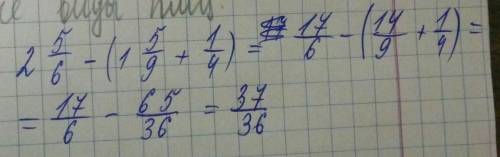 се виды птиц.
2 5/6 - (1 5/9 + 1/4) = 17/6 - (14/9 + 1/4) =
= 17/6 - 65/36 = 37/36